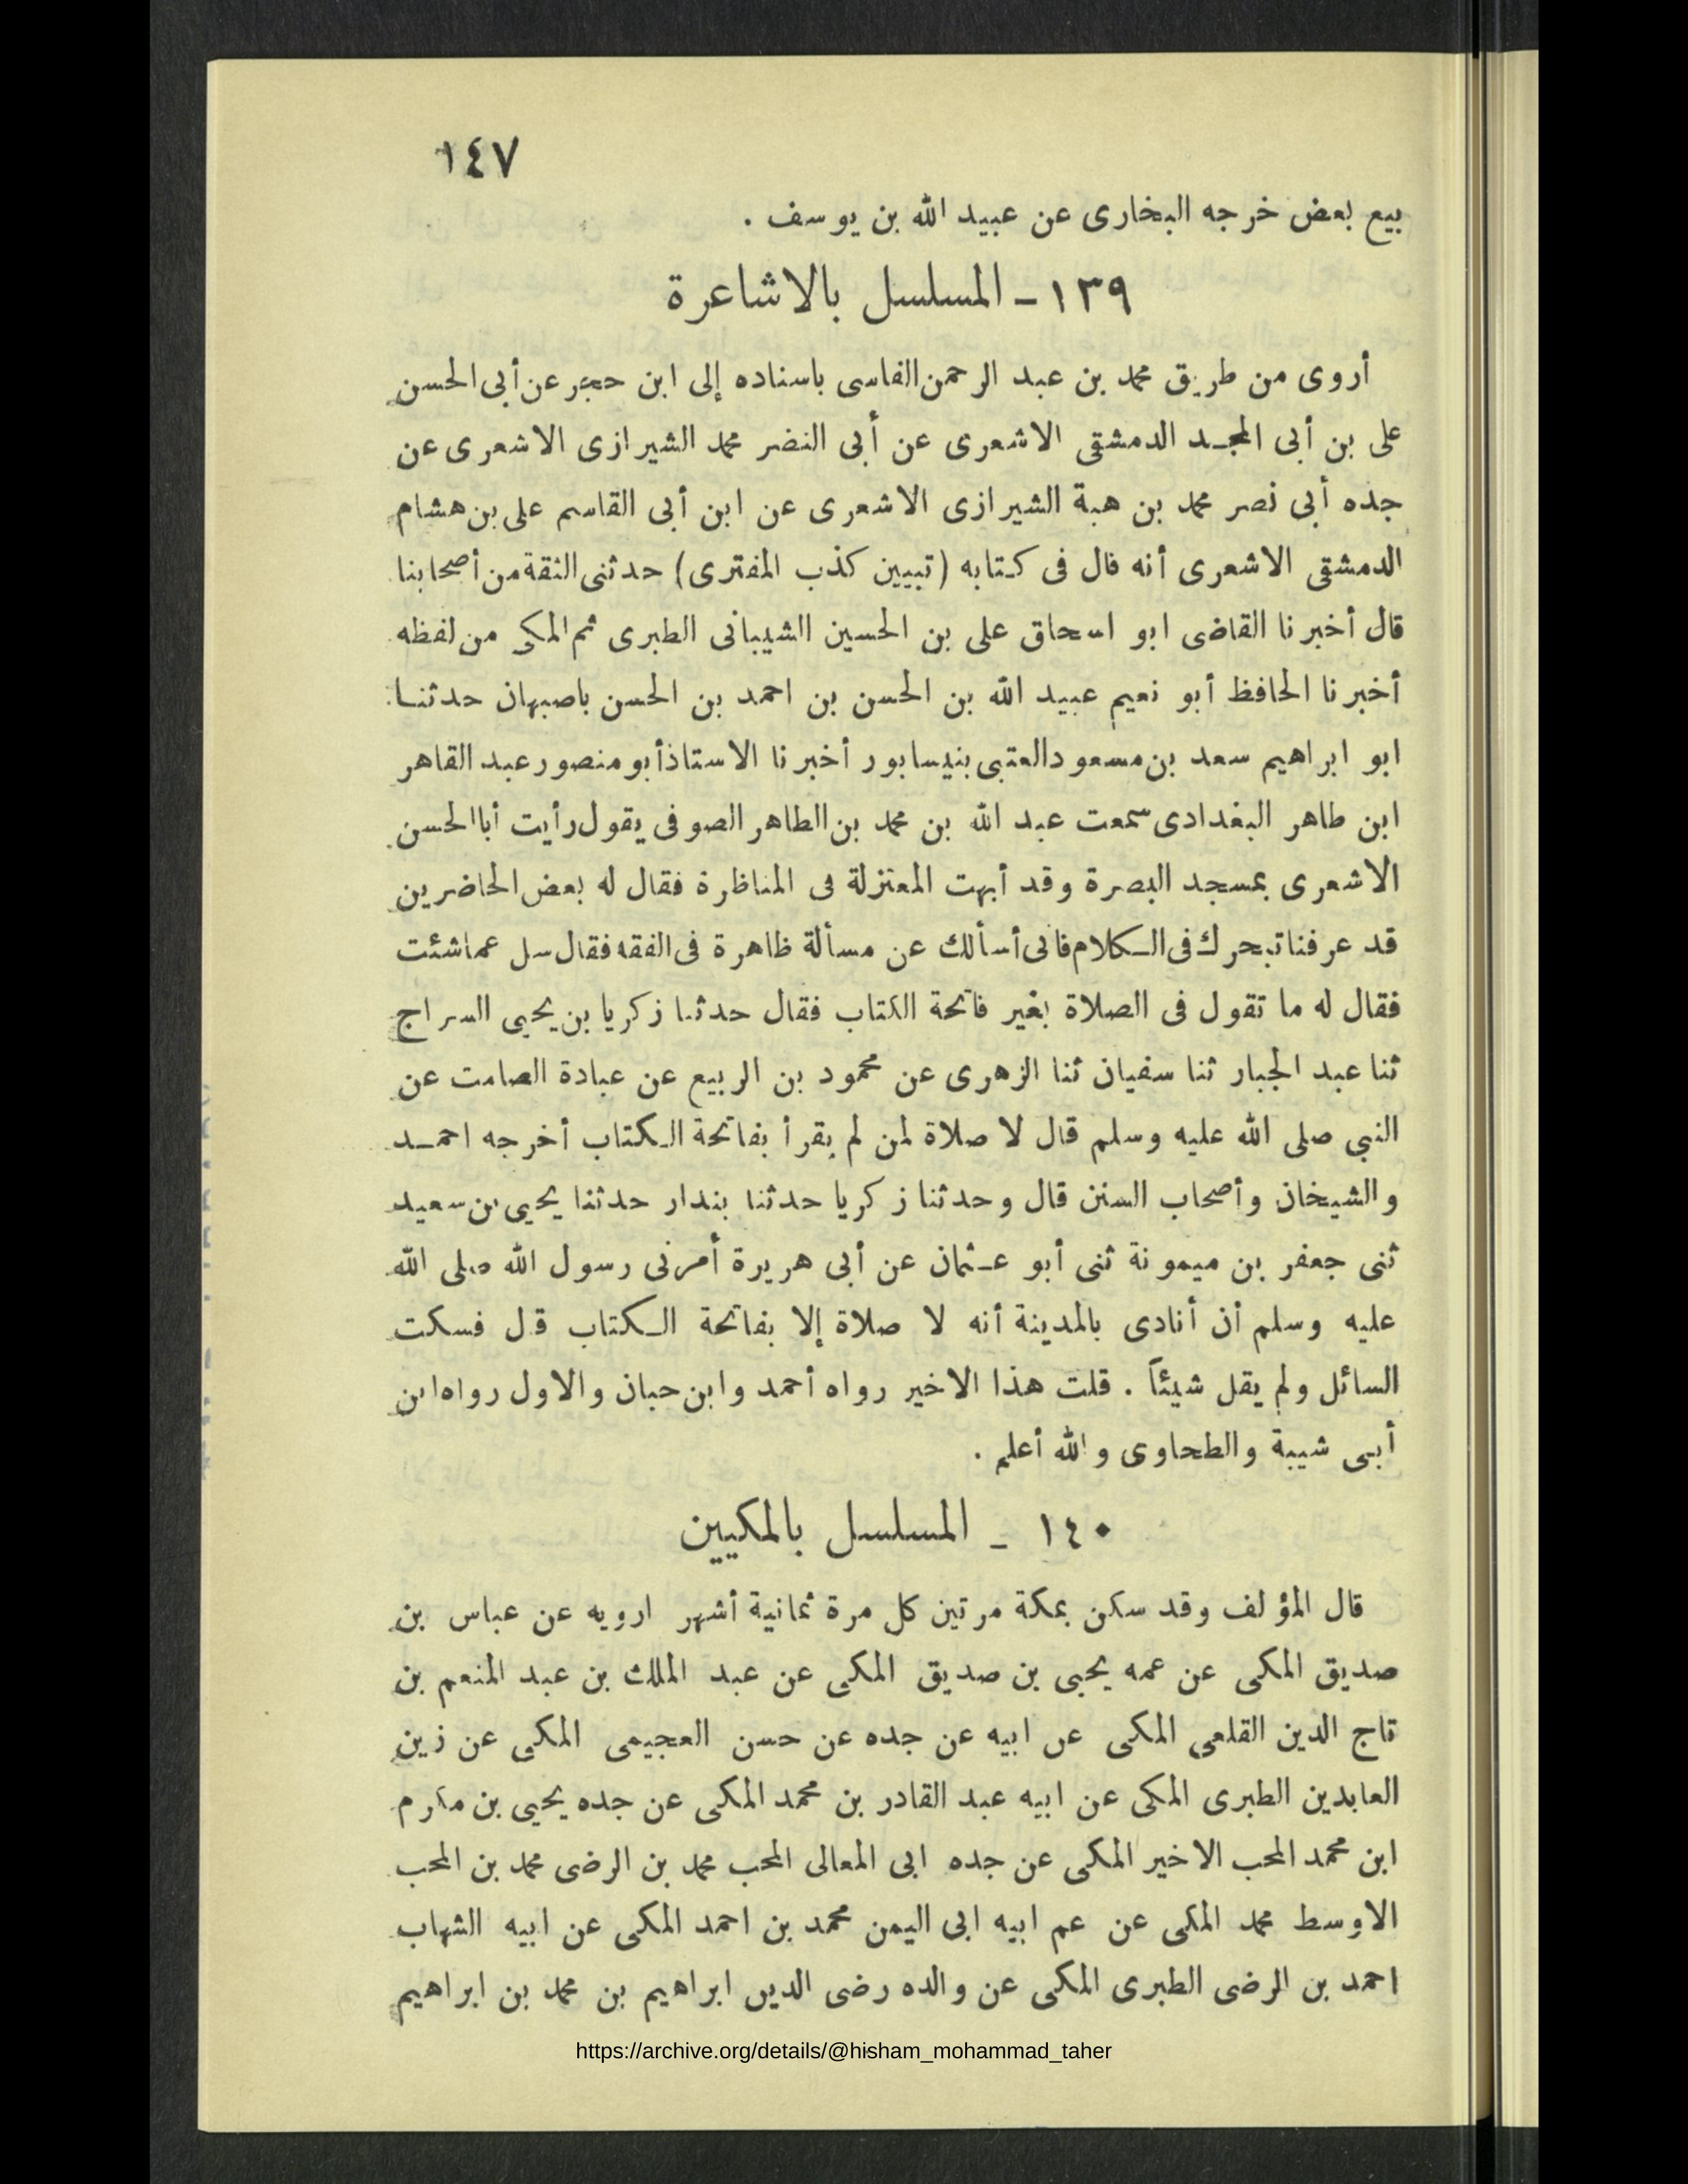 ١٤٧
بيع بعض خرجه البخارى عن عبيد الله بن يوسف .
١٣٩ - المسلسل بالاشاعرة
أروى من طريق محمد بن عبد الرحمن الفاسى باسناده إلى ابن حجر عن أبى الحسن
على بن أبى المجد الدمشقى الاشعرى عن أبى النضر محمد الشيرازى الاشعرى عن
جده أبى نصر محمد بن هبة الشيرازى الاشعرى عن ابن أبى القاسم على بن هشام
الدمشقى الاشعرى أنه قال فى كتابه (تبيين كذب المفترى) حدثنى الثقة من أصحابنا
قال أخبرنا القاضى ابو اسحاق على بن الحسين الشيبانى الطبرى ثم المكى من لفظه
أخبرنا الحافظ أبو نعيم عبيد الله بن الحسن بن احمد بن الحسن باصبهان حدثنا
ابو ابراهيم سعد بن مسعود العتبى بنيسابور أخبرنا الاستاذ أبو منصور عبد القاهر
ابن طاهر البغدادى سمعت عبد الله بن محمد بن الطاهر الصوفى يقول رأيت أبا الحسن
الاشعرى بمسجد البصرة وقد أبهت المعتزلة فى المناظرة فقال له بعض الحاضرين
قد عرفنا تبحرك فى الكلام فانى أسألك عن مسألة ظاهرة فى الفقه فقال سل عما شئت
فقال له ما تقول فى الصلاة بغير فاتحة الكتاب فقال حدثنا زكريا بن يحيى السراج
ثنا عبد الجبار ثنا سفيان ثنا الزهرى عن محمود بن الربيع عن عبادة الصامت عن
النبي صلى الله عليه وسلم قال لا صلاة لمن لم يقرأ بفاتحة الكتاب أخرجه احمد
والشيخان وأصحاب السنن قال وحدثنا زكريا حدثنا بندار حدثنا يحيى بن سعيد
ثنى جعفر بن ميمونة ثنى أبو عثمان عن أبى هريرة أمرنى رسول الله صلى الله
عليه وسلم أن أنادى بالمدينة أنه لا صلاة إلا بفاتحة الكتاب قل فسكت
السائل ولم يقل شيئاً . قلت هذا الاخير رواه أحمد وابن حبان والاول رواه ابن
أبى شيبة والطحاوى والله أعلم .
١٤٠ - المسلسل بالمكيين
قال المؤلف وقد سكن بمكة مرتين كل مرة ثمانية أشهر ارويه عن عباس بن
صديق المكى عن عمه يحيى بن صديق المكى عن عبد الملك بن عبد المنعم بن
تاج الدين القلعى المكى عن ابيه عن جده عن حسن العجيمى المكى عن زين
العابدين الطبرى المكى عن ابيه عبد القادر بن محمد المكى عن جده يحيى بن مكرم
ابن محمد المحب الاخير المكى عن جده ابى المعالى المحب محمد بن الرضى محمد بن المحب
الاوسط محمد المكى عن عم ابيه ابى اليمن محمد بن احمد المكى عن ابيه الشهاب
احمد بن الرضى الطبرى المكى عن والده رضى الدين ابراهيم بن محمد بن ابراهيم
https://archive.org/details/@hisham_mohammad_taher